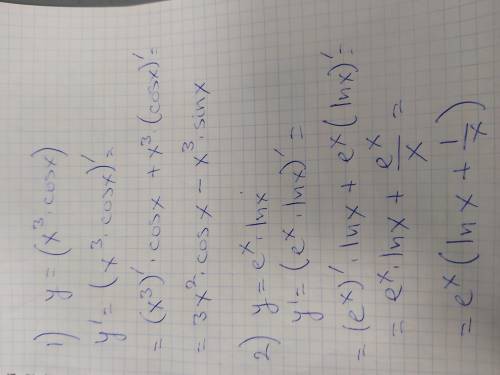 1) y = (x³·cosx)
y' = (x³·cosx)' =
= (x³)'·cosx + x³·(cosx)' =
= 3x²·cosx − x³·sinx
2) y = eˣ·lnx
y' = (eˣ·lnx)' =
= (eˣ)'·lnx + eˣ(lnx)' =
= eˣ·lnx + eˣ/x =
= eˣ(lnx + 1/x)